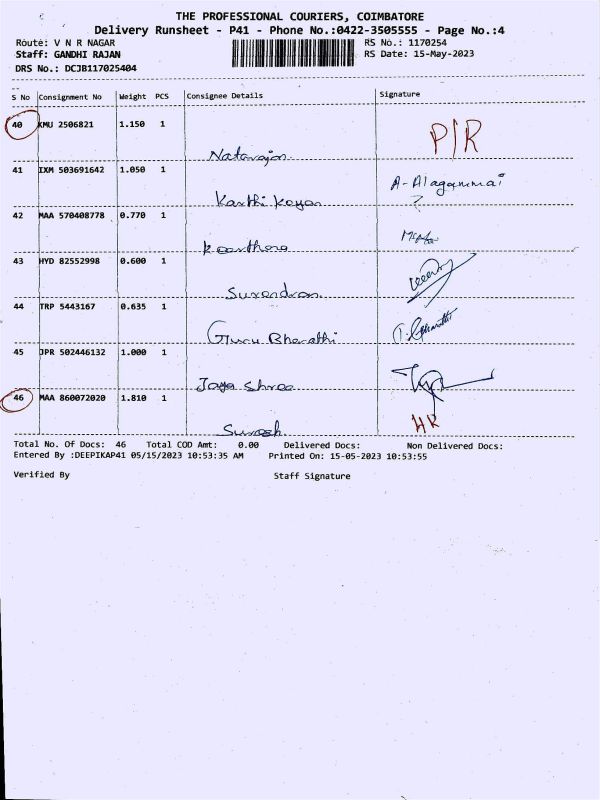 THE PROFESSIONAL COURIERS, COIMBATORE
Delivery Runsheet - P41 - Phone No.:0422-3505555 - Page No.:4
Route: V N R NAGAR RS No.: 1170254
Staff: GANDHI RAJAN RS Date: 15-May-2023
DRS No.: DCJB117025404
S No Consignment No Weight PCS Consignee Details Signature
40 KMU 2506821 1.150 1 P/R
Natarajan
41 IXM 503691642 1.050 1 A-Alagammai
Karthi Keyan ?
42 MAA 570408778 0.770 1
Keerthana
43 HYD 82552998 0.600 1
Surendran
44 TRP 5443167 0.635 1
Guru Bharathi
45 JPR 502446132 1.000 1
Jaya Shree
46 MAA 860072020 1.810 1 HR
Suresh
Total No. Of Docs: 46 Total COD Amt: 0.00 Delivered Docs: Non Delivered Docs:
Entered By :DEEPIKAP41 05/15/2023 10:53:35 AM Printed On: 15-05-2023 10:53:55
Verified By Staff Signature